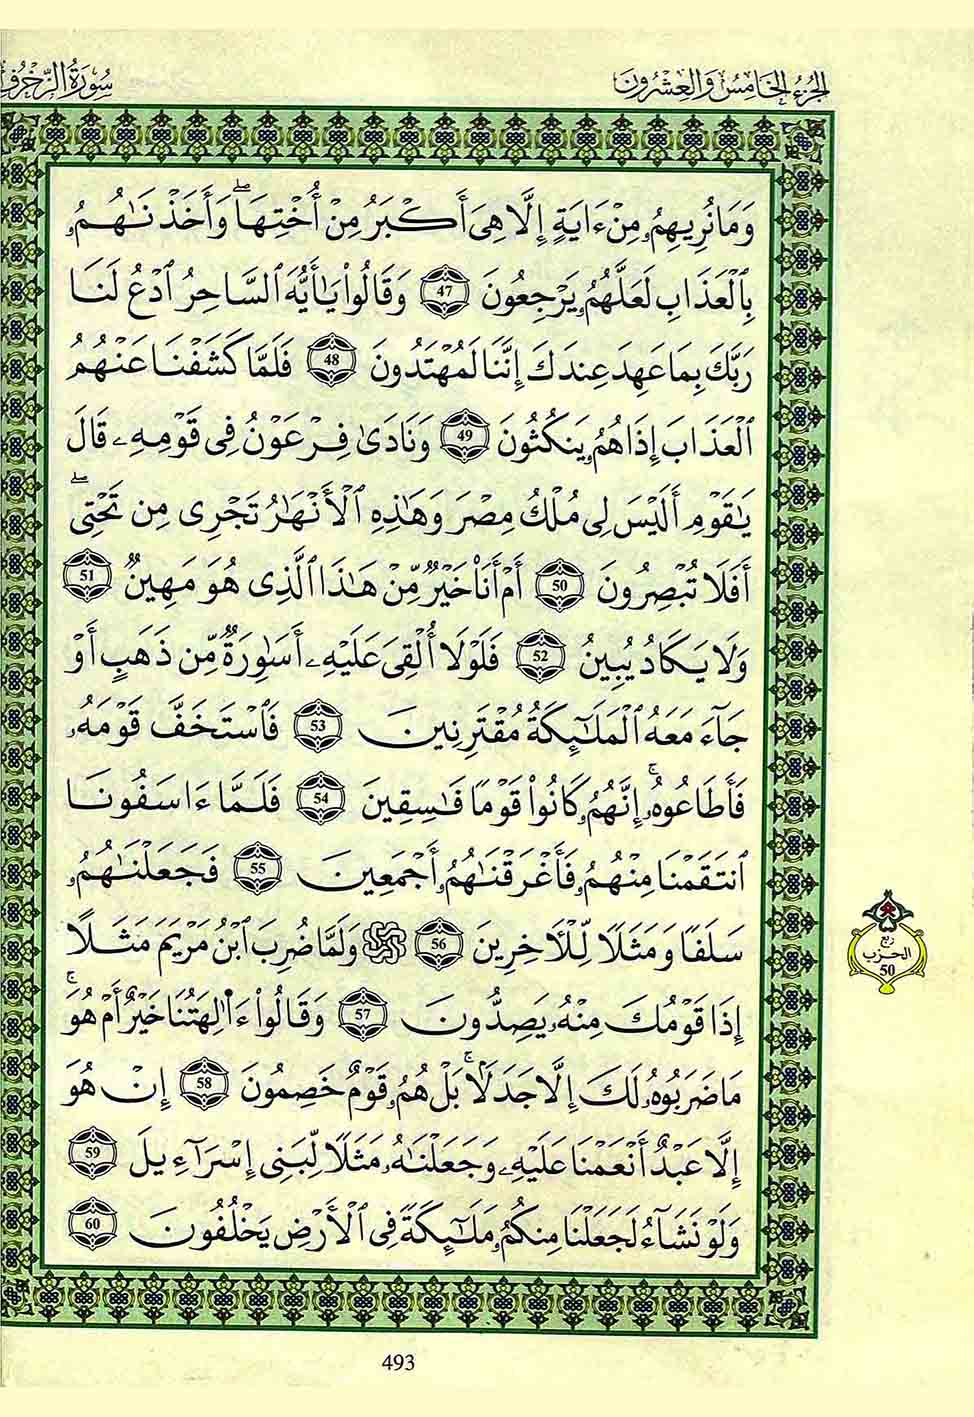 الجُزءُ الخَامِسُ وَالعِشْرُونَ
سُورَةُ الزُّخْرُفِ
وَمَا نُرِيهِمُۥ مِنْ ءَايَةٍ إِلَّا هِىَ أَكْبَرُ مِنْ أُخْتِهَاۖ وَأَخَذْنَٰهُمُۥ
بِالْعَذَابِ لَعَلَّهُمُۥ يَرْجِعُونَ 47 وَقَالُواْ يَٰأَيُّهَ اَ۬لسَّاحِرُ اُ۟دْعُ لَنَا
رَبَّكَ بِمَا عَهِدَ عِندَكَ إِنَّنَا لَمُهْتَدُونَ 48 فَلَمَّا كَشَفْنَا عَنْهُمُ
اُ۬لْعَذَابَ إِذَا هُمُۥ يَنكُثُونَ 49 وَنَادَىٰ فِرْعَوْنُ فِى قَوْمِهِۦ قَالَ
يَٰقَوْمِ أَلَيْسَ لِى مُلْكُ مِصْرَ وَهَٰذِهِ اِ۬لْأَنْهَٰرُ تَجْرِى مِن تَحْتِىَۖ
أَفَلَا تُبْصِرُونَ 50 أَمْ أَنَا۠ خَيْرٌ مِّنْ هَٰذَا اَ۬لَّذِى هُوَ مَهِينٌ 51
وَلَا يَكَادُ يُبِينُ 52 فَلَوْلَا أُلْقِىَ عَلَيْهِۦ أَسَٰوِرَةٌ مِّن ذَهَبٍ أَوْ
جَآءَ مَعَهُ اُ۬لْمَلَٰٓئِكَةُ مُقْتَرِنِينَ 53 فَاسْتَخَفَّ قَوْمَهُۥ
فَأَطَاعُوهُۥۚ إِنَّهُمُۥ كَانُواْ قَوْمًا فَٰسِقِينَ 54 فَلَمَّا ءَاسَفُونَا
اَ۪نتَقَمْنَا مِنْهُمُۥ فَأَغْرَقْنَٰهُمُۥ أَجْمَعِينَ 55 فَجَعَلْنَٰهُمُۥ
سَلَفًا وَمَثَلًا لِّلْأٓخِرِينَ 56 وَلَمَّا ضُرِبَ اَ۪بْنُ مَرْيَمَ مَثَلًا
إِذَا قَوْمُكَ مِنْهُۥ يَصِدُّونَ 57 وَقَالُواْ ءَا۬لِهَتُنَا خَيْرٌ أَمْ هُوَۚ
مَا ضَرَبُوهُۥ لَكَ إِلَّا جَدَلًاۚ بَلْ هُمُۥ قَوْمٌ خَصِمُونَ 58 إِنْ هُوَ
إِلَّا عَبْدٌ أَنْعَمْنَا عَلَيْهِۦ وَجَعَلْنَٰهُۥ مَثَلًا لِّبَنِى إِسْرَآءِيلَ 59
وَلَوْ نَشَآءُ لَجَعَلْنَا مِنكُمُۥ مَلَٰٓئِكَةً فِى اِ۬لْأَرْضِ يَخْلُفُونَ 60
ربع
الحزب
50
493